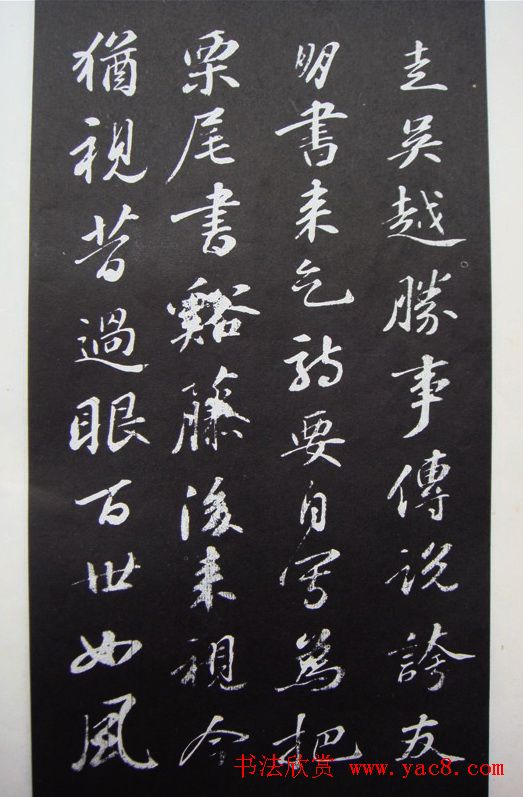 走吳越勝事傳說誇友
朋書来乞詩要自寫為把
栗尾書谿藤後来視今
猶視昔過眼百世如風
书法欣赏 www.yac8.com